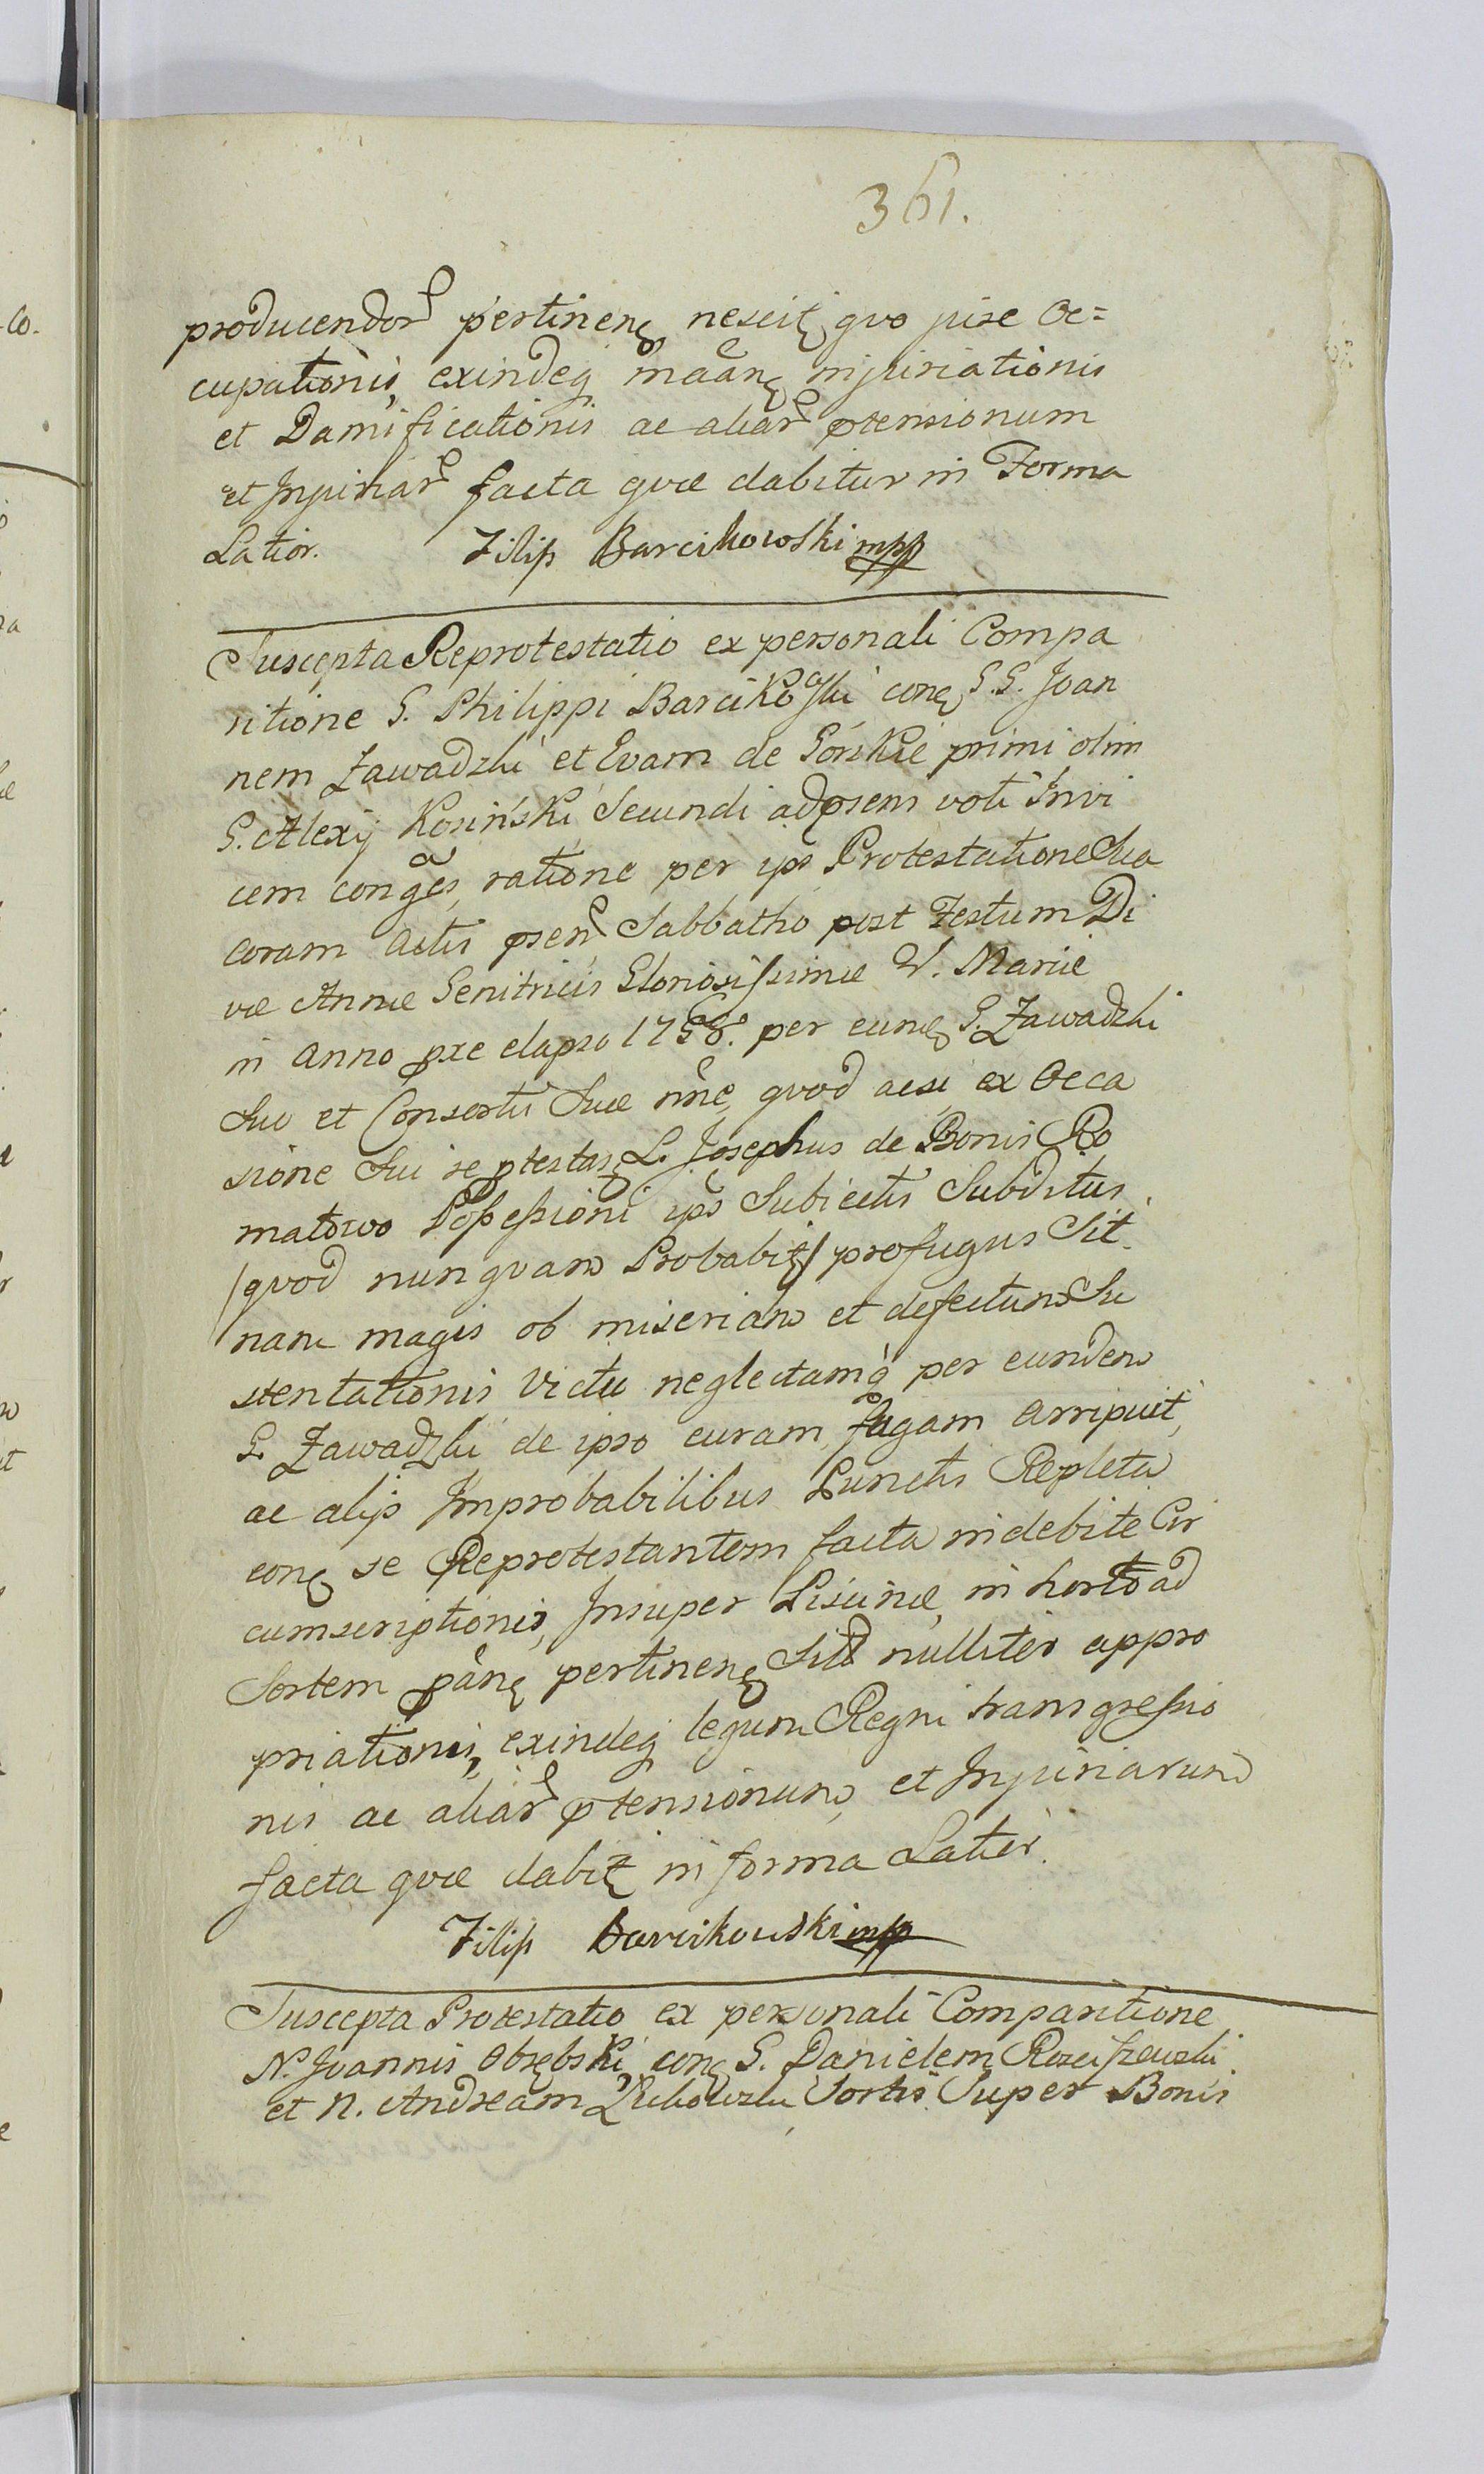 361.
producendor pertinen nescit quo jure Oc=
cupationis, exindeq maan injuriationis
et Damificationis ac aliar ptensionum
et Injuriar facta quæ dabitur in Forma
Latior. Filip Barcikowski mpp
Suscepta Reprotestatio ex personali Compa
ritione G. Philippi Barcikoski con G.G. Joan
nem Zawadzki et Evam de Górskie primi olim
G. Alexij Kosinski Secundi adpsens voti Invi
cem conges, ratione per ips Protestatione Sua
coram Actis psen Sabbatho post Festum Di
væ Annæ Genitricis Gloriosissimæ V. Mariæ
in Anno præ elapso 1758. per eund G. Zawadzki
Suo et Consortis Suæ nne, quod acsi ex Occa
sione Sui se ptestas L. Josephus de Bonis Ro
matowo Possessioni ips Subiectis Subditus
/quod nunquam Probabit/ profugus Sit.
nam magis ob miseriam et defectum Su
stentationis Victu neglectamq per eundem
G. Zawadzki de ipso curam, fugam Arripuit,
ac alijs Improbabilibus Punctis Repleta
con se Reprotestantem facta indebite Cir
cumscriptionis, Insuper Piscinæ, in horto ad
Sortem pan pertinen Sitæ nulliter appro
priationis, exindeq legum Regni transgressio
nis ac aliar ptensionum, et Injuriarum
facta quæ dabit in forma Latior.
Filip Barcikowski mpp
Suscepta Protestatio ex personali Comparitione
N. Joannis Obrębski, con G. Danielem Rosciszewski
et N. Andream Sortis Super Bonis